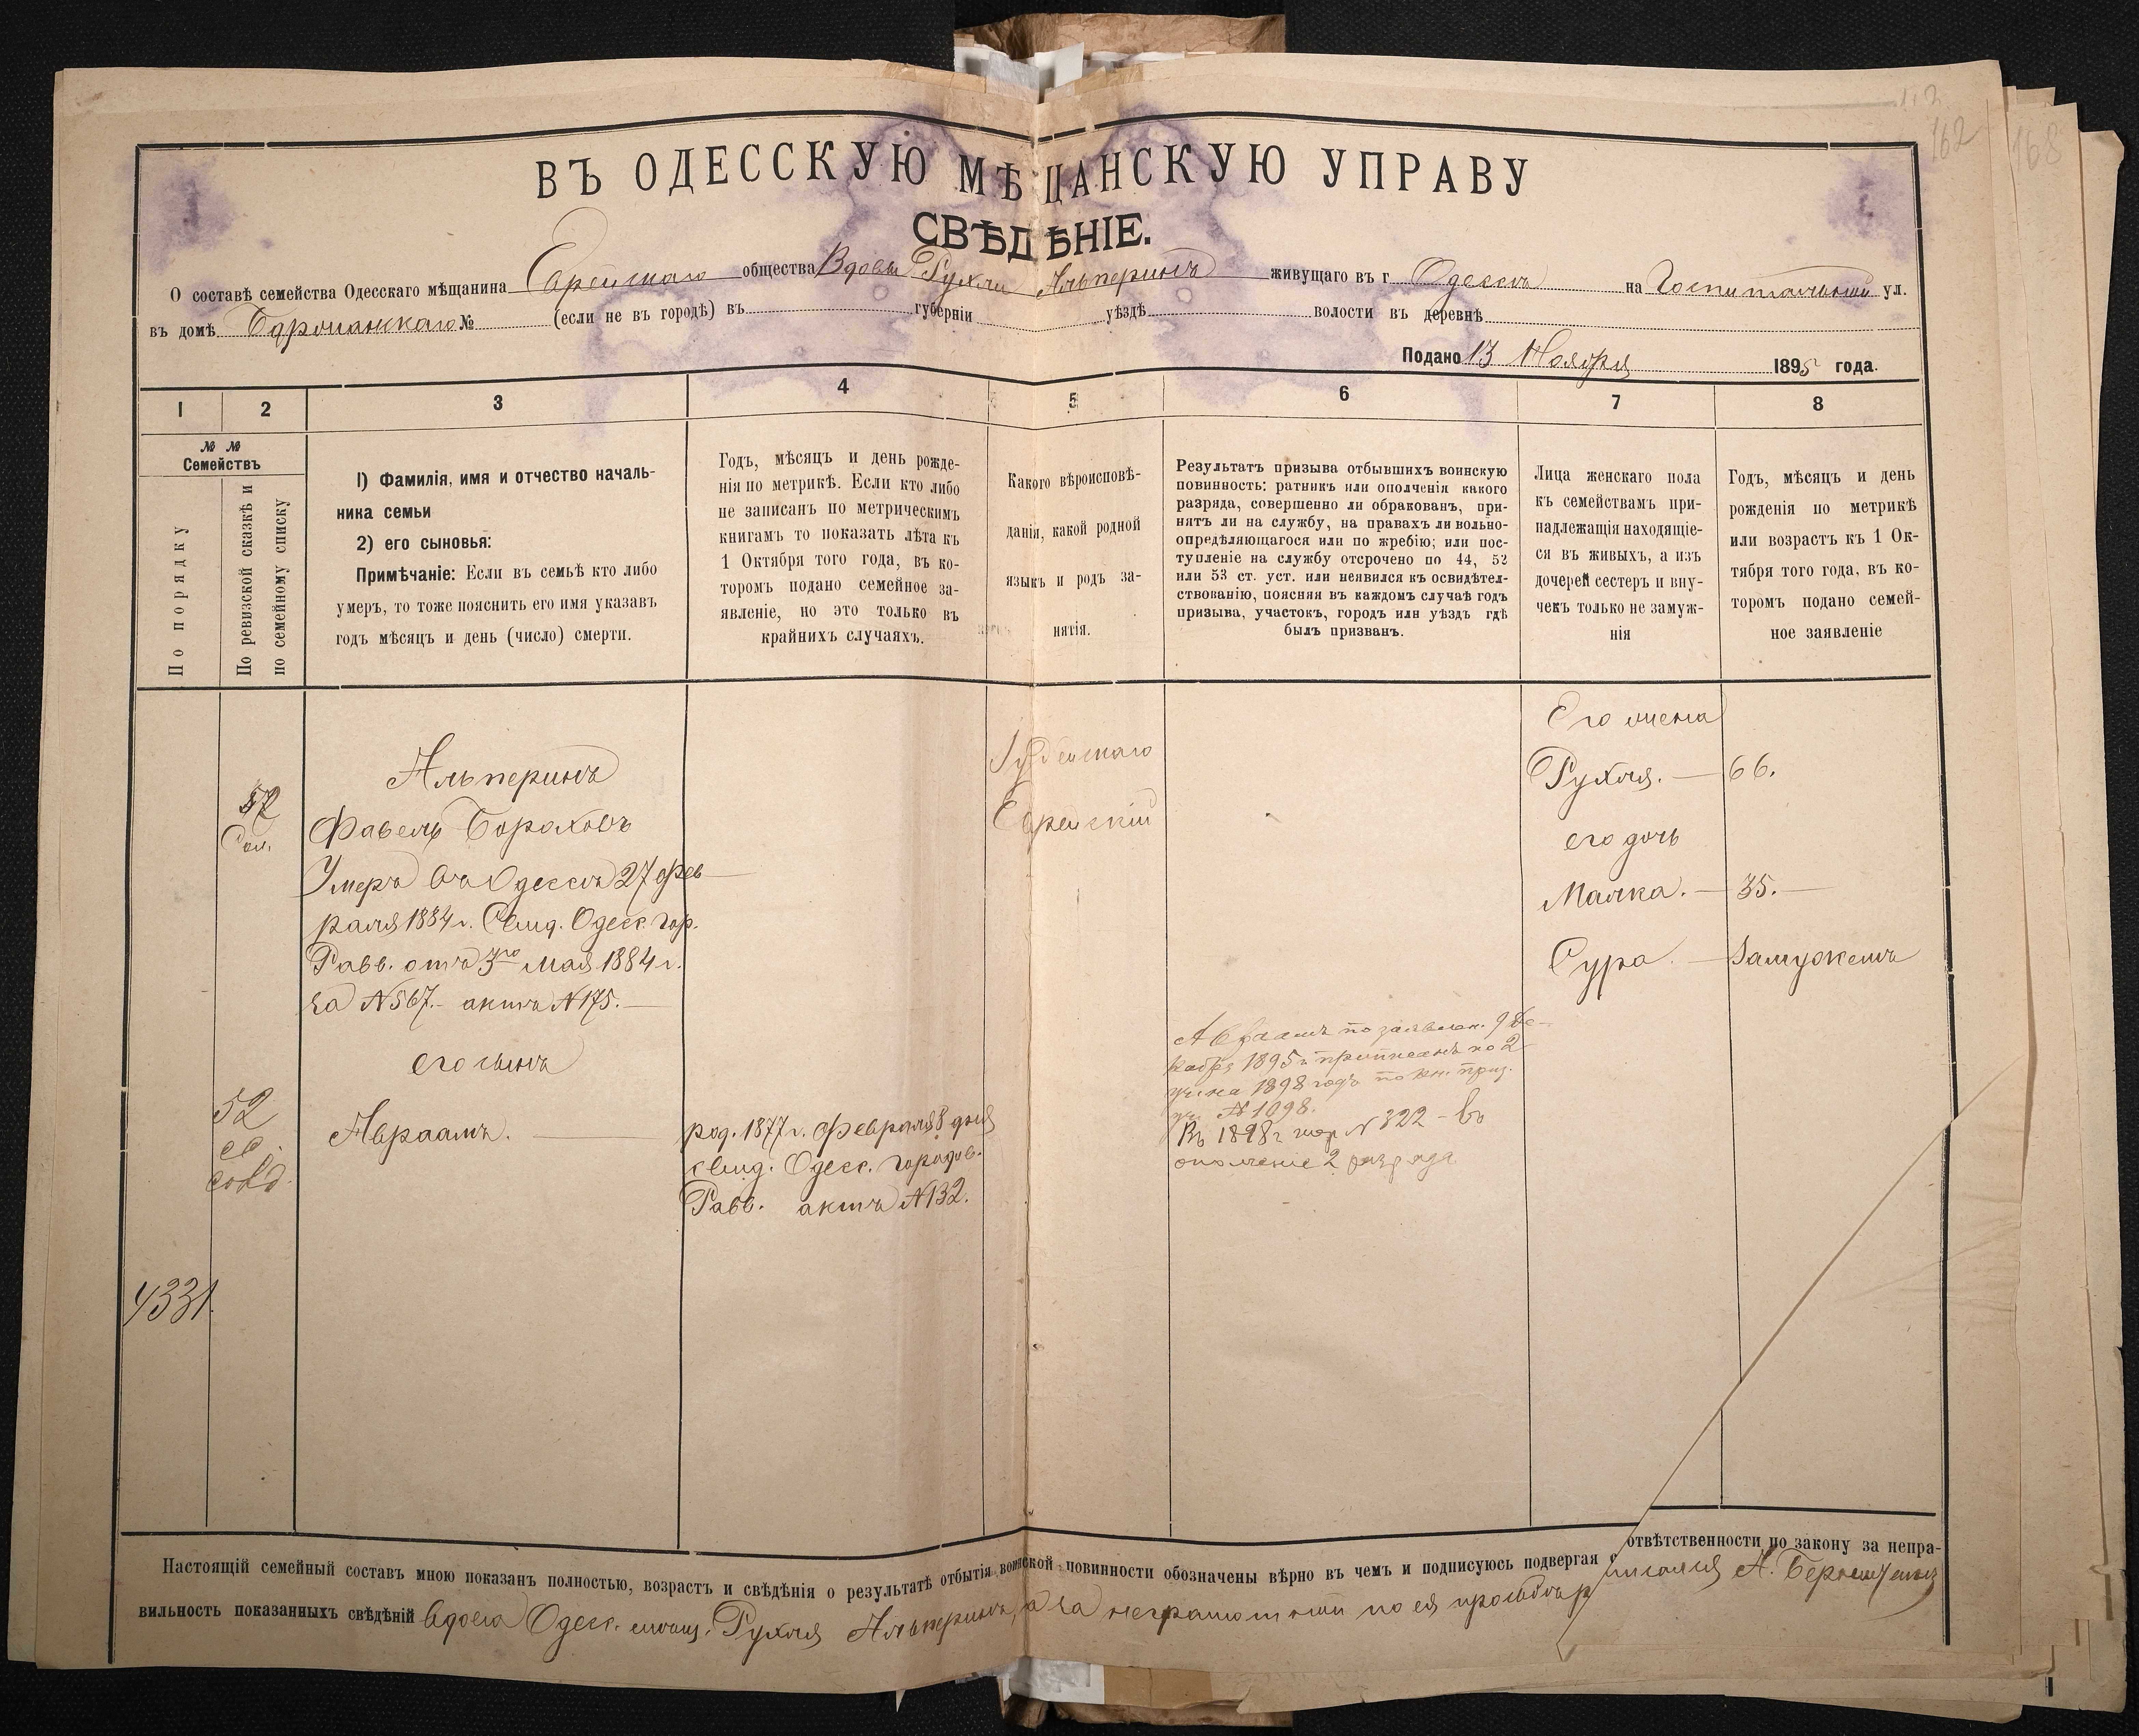 162
168
ВЪ ОДЕССКУЮ МѢЩАНСКУЮ УПРАВУ
СВѢДѢНІЕ.
О составѣ семейства Одесскаго мѣщанина Еврейскаго общества Вдовы Рухли Альперинъ живущаго въ г Одессѣ на Госпитальной ул.
въ домѣ № (если не въ городѣ) въ губерніи уѣздѣ волости въ деревнѣ
Подано 13 Ноября 1895 года.
1
2
3
4
5
6
7
8
№ №
Семействъ
По порядку
По ревизской сказкѣ и
по семейному списку
1) Фамилія, имя и отчество началь-
ника семьи
2) его сыновья:
Примѣчаніе: Если въ семьѣ кто либо
умеръ, то тоже пояснить его имя указавъ
годъ мѣсяцъ и день (число) смерти.
Годъ, мѣсяцъ и день рожде-
нія по метрикѣ. Если кто либо
не записанъ по метрическимъ
книгамъ то показать лѣта къ
1 Октября того года, въ ко-
торомъ подано семейное за-
явленіе, но это только въ
крайнихъ случаяхъ.
Какого вѣроисповѣ-
данія, какой родной
языкъ и родъ за-
нятія.
Результатъ призыва отбывшихъ воинскую
повинность: ратникъ или ополченія какого
разряда, совершенно ли обракованъ, при-
нятъ ли на службу, на правахъ ли вольно-
опредѣляющагося или по жребію; или пос-
тупленіе на службу отсрочено по 44, 52
или 53 ст. уст. или неявился къ освидѣтел-
ствованію, поясняя въ каждомъ случаѣ годъ
призыва, участокъ, городъ или уѣздъ гдѣ
былъ призванъ.
Лица женскаго пола
къ семействамъ при-
надлежащія находящіе-
ся въ живыхъ, а изъ
дочерей сестеръ и вну-
чекъ только не замуж-
нія
Годъ, мѣсяцъ и день
рожденія по метрикѣ
или возрастъ къ 1 Ок-
тября того года, въ ко-
торомъ подано семей-
ное заявленіе
Альперинъ
Фавель Бороховъ
Умеръ въ Одессѣ 27 фев
раля 1884 г. Свид. Одесс. гор.
Равв. отъ 3го Мая 1884 г.
за №567.- актъ №175.
его сынъ
52
Авраамъ.
род. 1877 г. Февраля 8 дня
свид. Одесс. городов.
Равв. актъ №132.
Іудейскаго
Еврейскій
Авраамъ по заявлен. 9 Де-
кабря 1895 г приписанъ ко 2
уч. на 1898 годъ по кн. приз.
уч. №1098.
Въ 1898 г жер №322 - въ
ополченіе 2 разряда
Его жена
Рухля. — 66.
его дочь
Малка. — 35.
Сура. — Замужемъ
4331
Настоящій семейный составъ мною показанъ полностью, возрастъ и свѣдѣнія о результатѣ отбытія воинской повинности обозначены вѣрно въ чемъ и подписуюсь подвергая отвѣтственности по закону за непра-
вильность показанныхъ свѣдѣній вдова Одесс. мѣщ. Рухля Альперинъ, а за неграмотной по ея просьбѣ А.